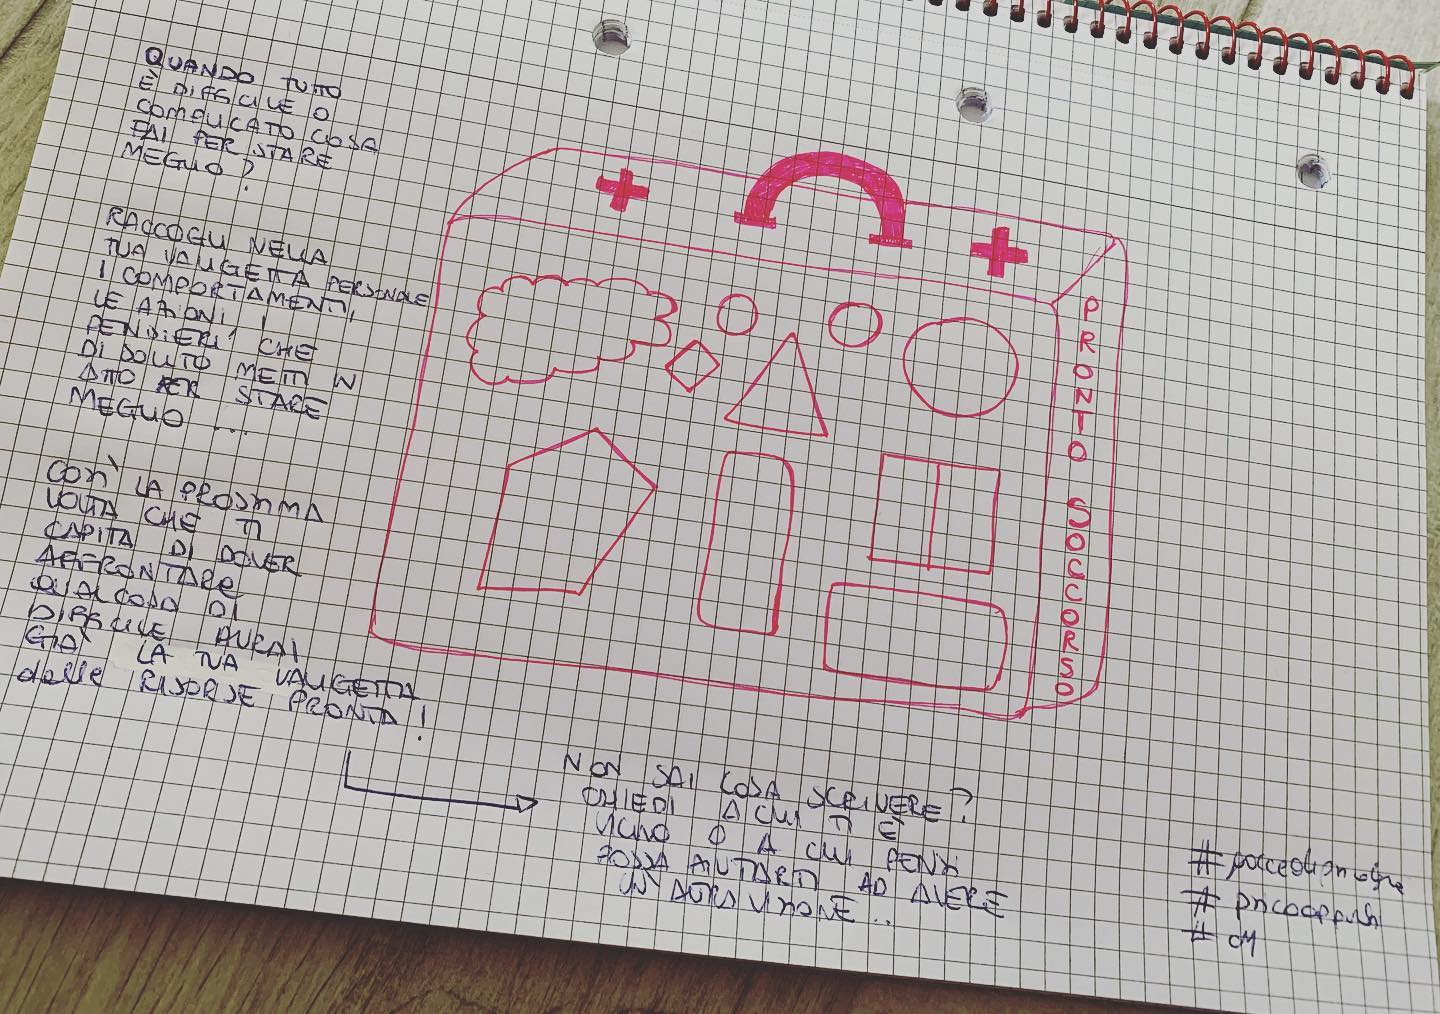 QUANDO TUTTO
È DIFFICILE O
COMPLICATO COSA
FAI PER STARE
MEGLIO?
RACCOGLI NELLA
TUA VALIGETTA PERSONALE
I COMPORTAMENTI,
LE AZIONI I
PENSIERI CHE
DI SOLITO METTI IN
ATTO PER STARE
MEGLIO ...
COSÌ LA PROSSIMA
VOLTA CHE TI
CAPITA DI DOVER
AFFRONTARE
QUALCOSA DI
DIFFICILE AVRAI
GIÀ LA TUA VALIGETTA
delle RISORSE PRONTA!
PRONTO SOCCORSO
NON SAI COSA SCRIVERE?
CHIEDI A CHI TI È
VICINO O A CHI PENSI
POSSA AIUTARTI AD AVERE
UN'ALTRA VISIONE...